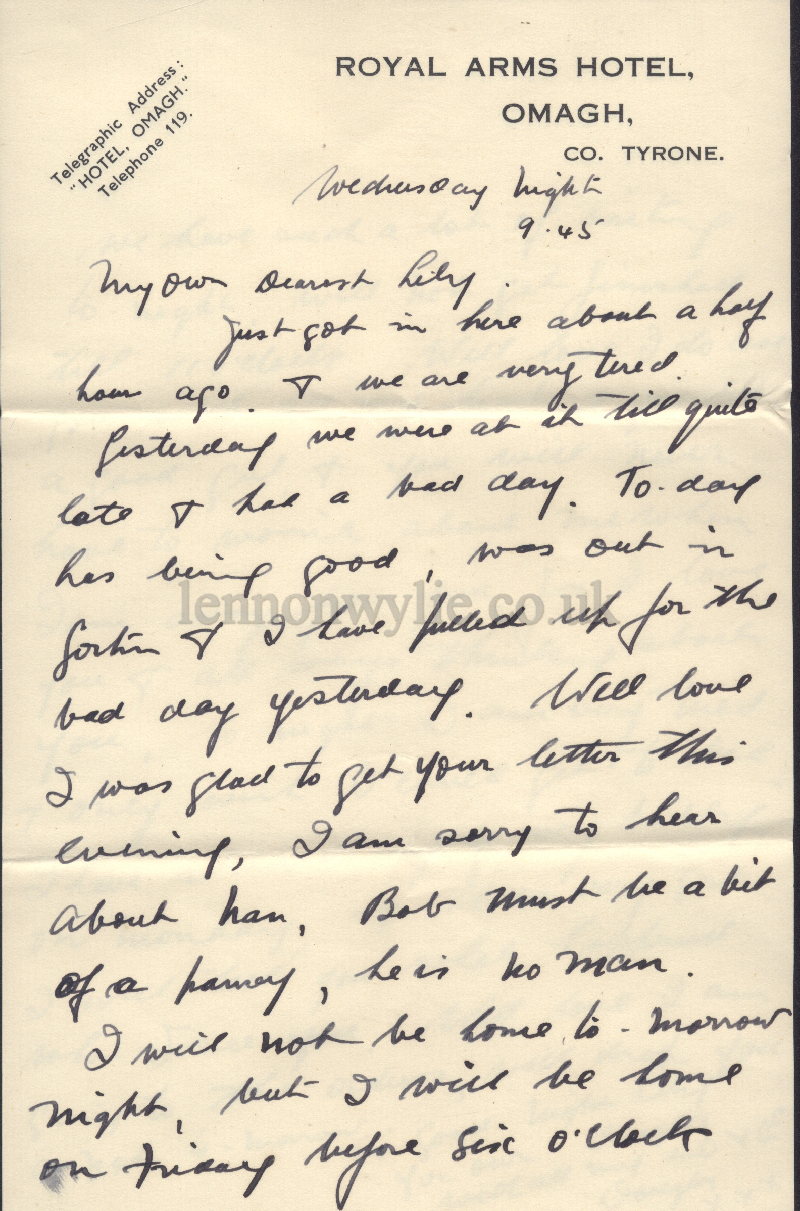 Telegraphic Address:
"HOTEL, OMAGH."
Telephone 119.
ROYAL ARMS HOTEL,
OMAGH,
CO. TYRONE.
Wednesday Night
9.45
My Own Dearest Lily.
Just got in here about a half
hour ago. & we are very tired.
Yesterday we were at it till quite
late & had a bad day. To-day
has being good, was out in
Gortin & I have pulled up for the
bad day yesterday. Well love
I was glad to get your letter this
evening, I am sorry to hear
about Nan, Bob must be a bit
of a , he is no man.
I will not be home to-morrow
night, but I will be home
on Friday before six o'clock
lennonwylie.co.uk